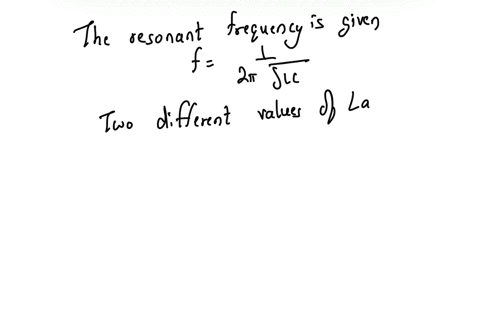 The resonant frequency is given
f = 1 / 2π √LC
Two different values of La